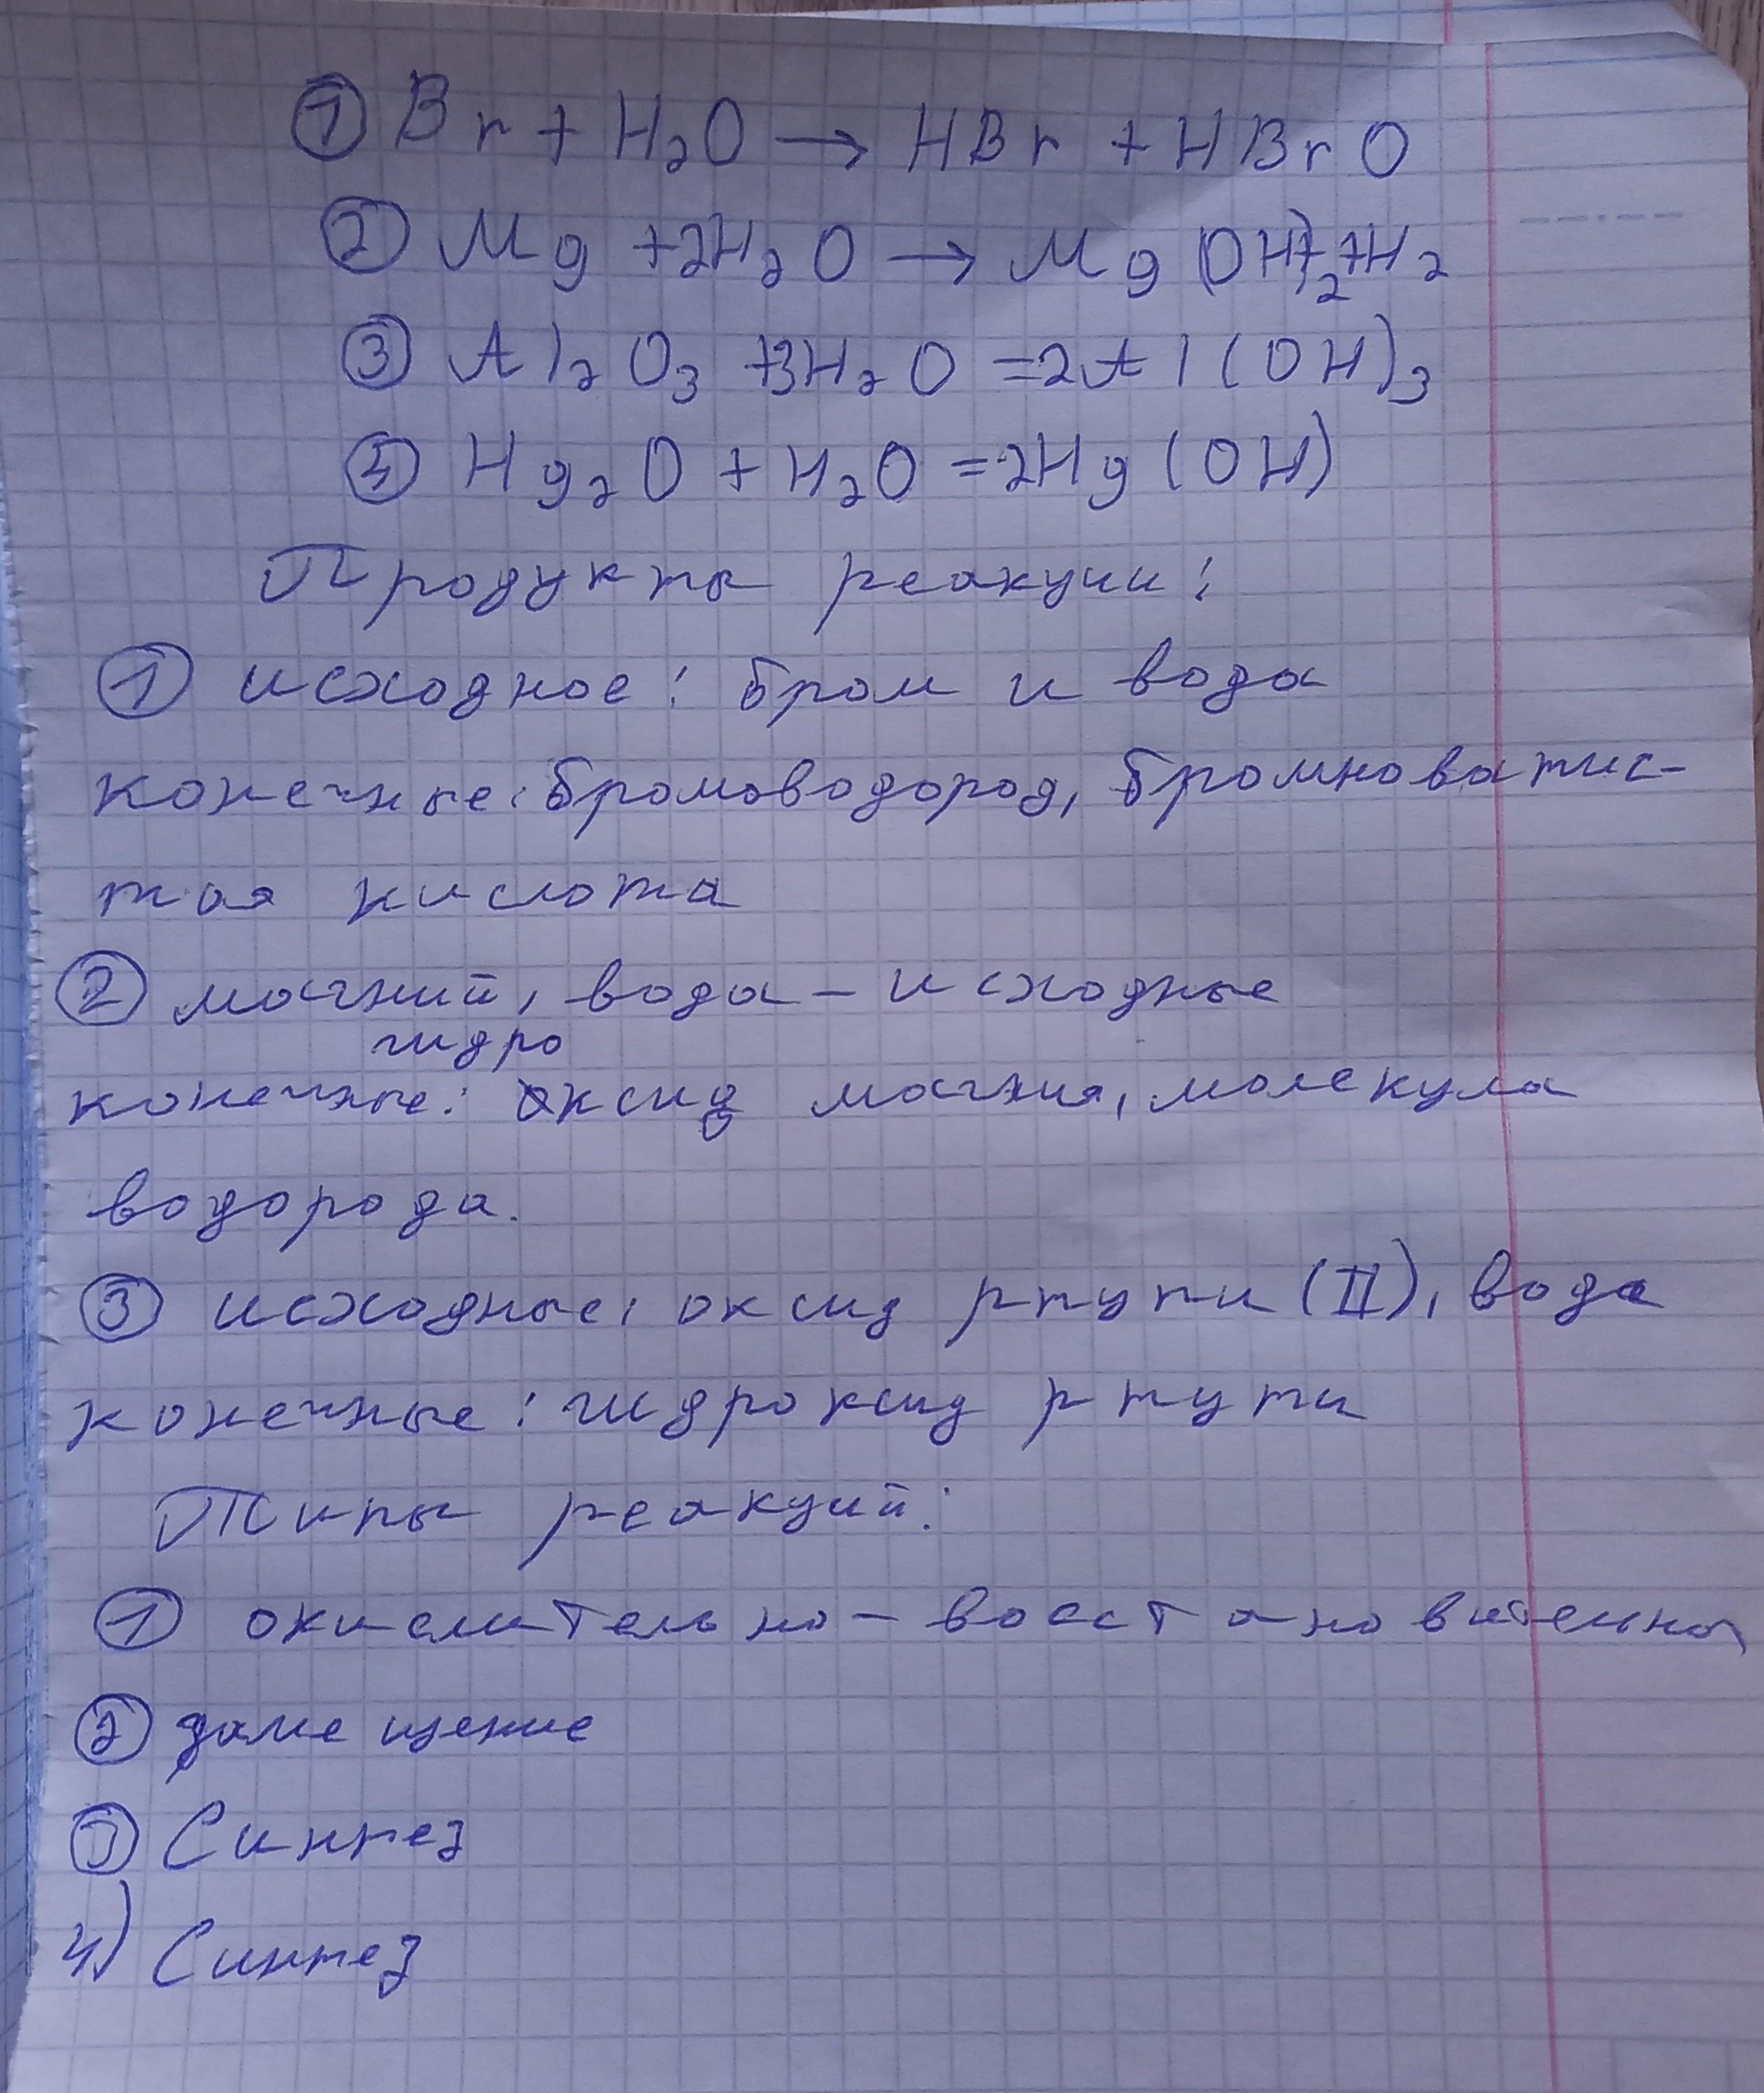 ① Br + H₂O → HBr + HBrO
② Mg + 2H₂O → Mg(OH)₂ + H₂
③ Al₂O₃ + 3H₂O = 2Al(OH)₃
④ Hg₂O + H₂O = 2Hg(OH)
Продукты реакции:
① исходное: бром и вода
конечные: бромоводород, бромноватис-
тая кислота
② магний, вода – исходные
гидро
конечные: оксид магния, молекула
водорода.
③ исходные: оксид ртути (II), вода
конечные: гидроксид ртути
Типы реакций:
① окислительно – восстановительная
② замещение
③ Синтез
4) Синтез